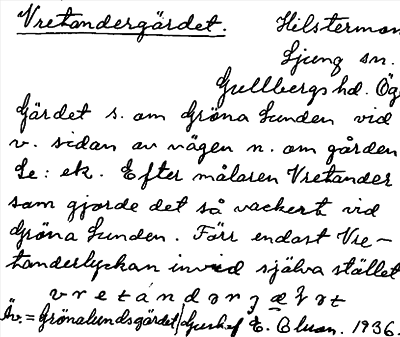 Vretandergärdet. Hilsterman
Ljung sn.
Gullbergs hd. Ög
Gärdet s. om Gröna Lunden vid
v. sidan av vägen n. om gården
Le: ek. Efter målaren Vretander
som gjorde det så vackert vid
Gröna Lunden. Förr endast Vre-
tanderlyckan invid själva stället
Äv. = Grönalundsgärdet E. Cluan. 1936.